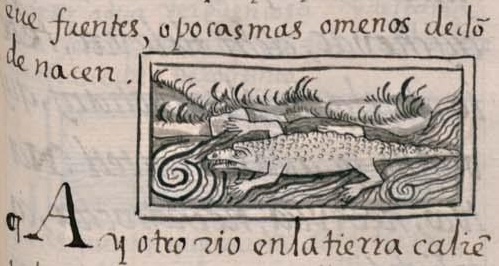 que fuentes, o pocas mas o menos dedō
de nacen.
¶ Ay otro rio enla tierra caliē